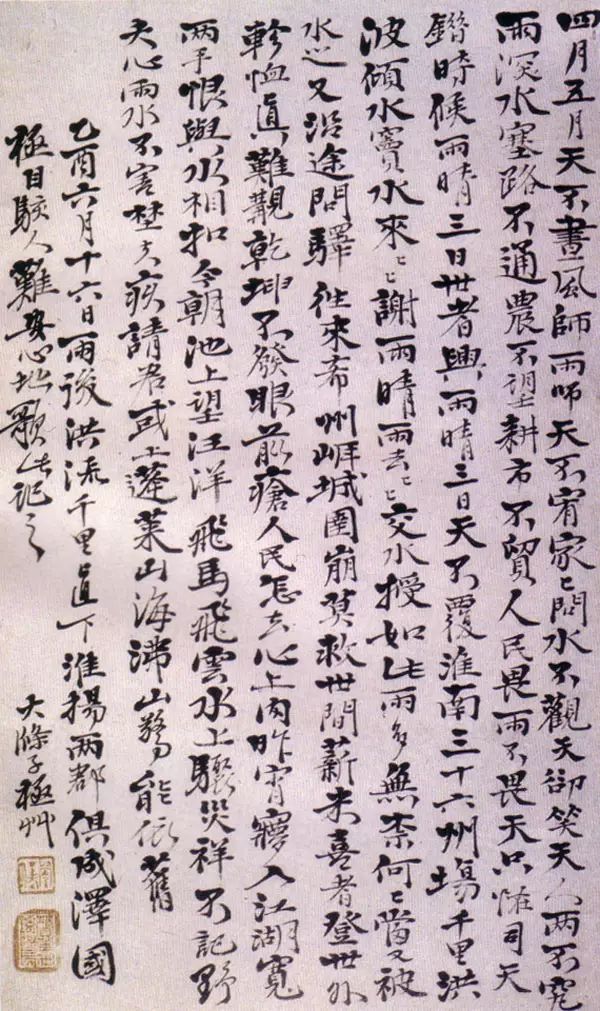 四月五月天不晝風師雨師天不宥家〻問水不觀天卻笑天人兩不究
雨深水塞路不通農不望耕市不貿人民畏雨不畏天只恠司天
鐕時候雨晴三日世者興雨晴三日天不覆淮南三十六州塲千里洪
波傾水竇水來〻謝雨晴雨去〻交水授如此雨多無柰何〻當又被
水之又沿途問驛往來奔州崕城圍崩莫救世間薪未喜者登世外
軫恤真難觀乾坤不發眼前瘡人民怎去心上肉昨宵寢入江湖寬
兩手恨與水相和今朝池上望汪洋飛馬飛雲水上驟災祥不記野
夫心雨水不害埜夫疾請君或上蓬萊山海沸山驚能依舊
乙酉六月十六日雨後洪流千里直下淮揚兩郡俱成澤國
極目駭人難安心地歌此記之
大滌子極艸